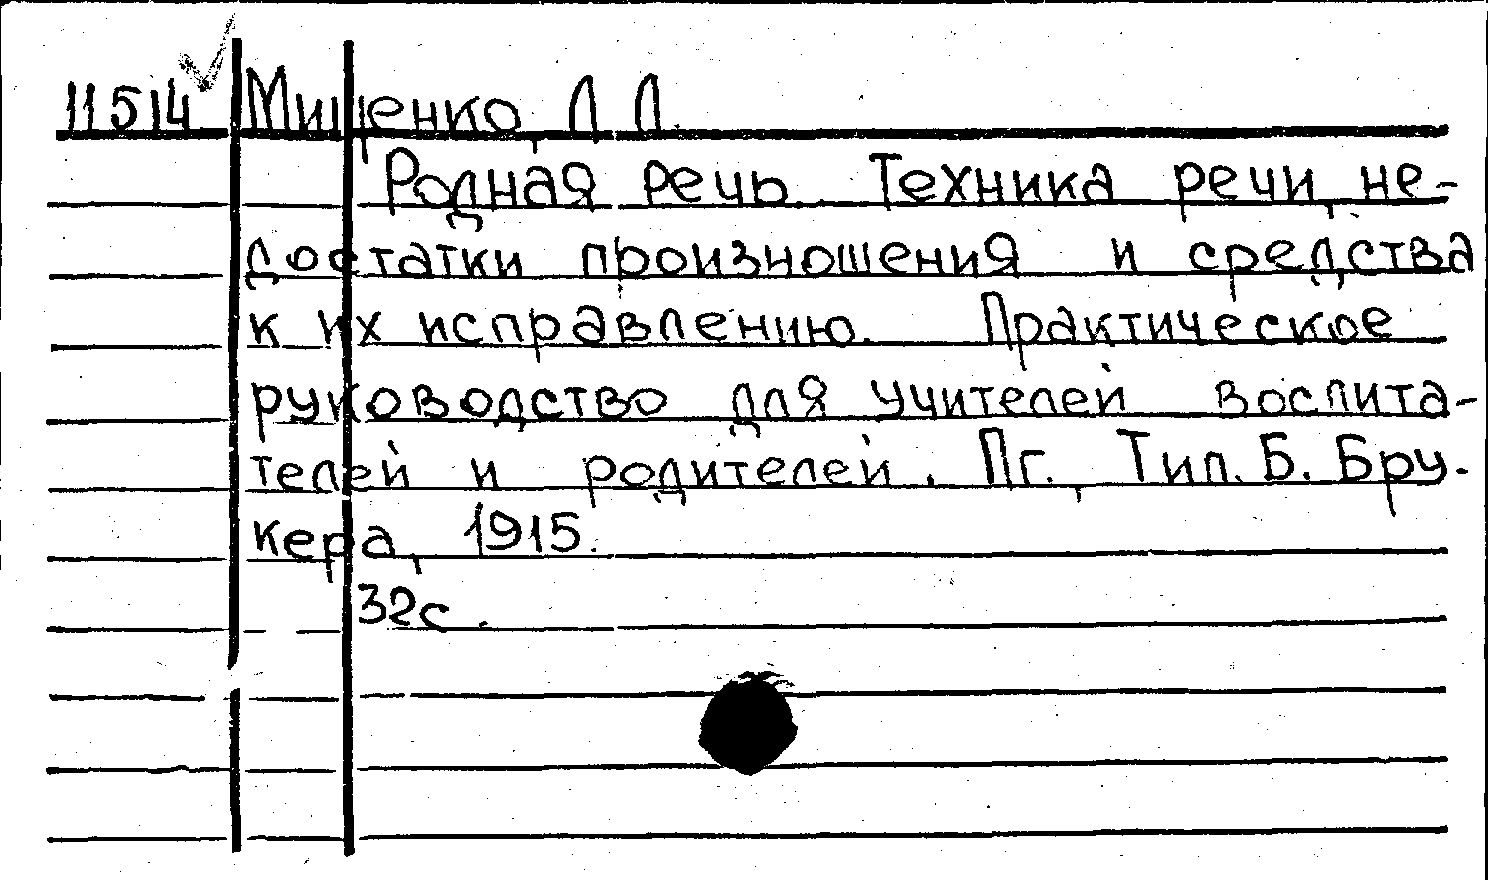 11514 Мищенко, Л Л.
Родная речь. Техника речи, не-
достатки произношения и средства
к их исправлению. Практическое
руководство для учителей воспита-
телей и родителей. Пг., Тип. Б. Бру-
кера, 1915.
32с.